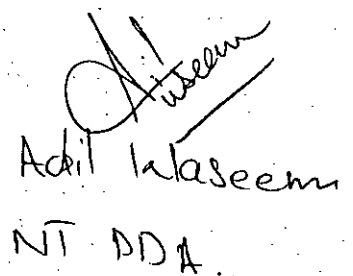 Adil Waseem
NT DDA.